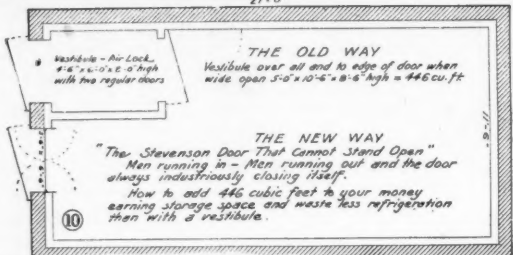 THE OLD WAY
Vestibule - Air Lock
4'-6" x 6'-0" x 8'-0" high
with two regular doors
Vestibule over all and to edge of door when
wide open 5'-0" x 10'-6" x 8'-6" high = 446 cu. ft.
THE NEW WAY
"The Stevenson Door That Cannot Stand Open"
Men running in - Men running out and the door
always industriously closing itself.
How to add 446 cubic feet to your money
earning storage space and waste less refrigeration
than with a vestibule.
10